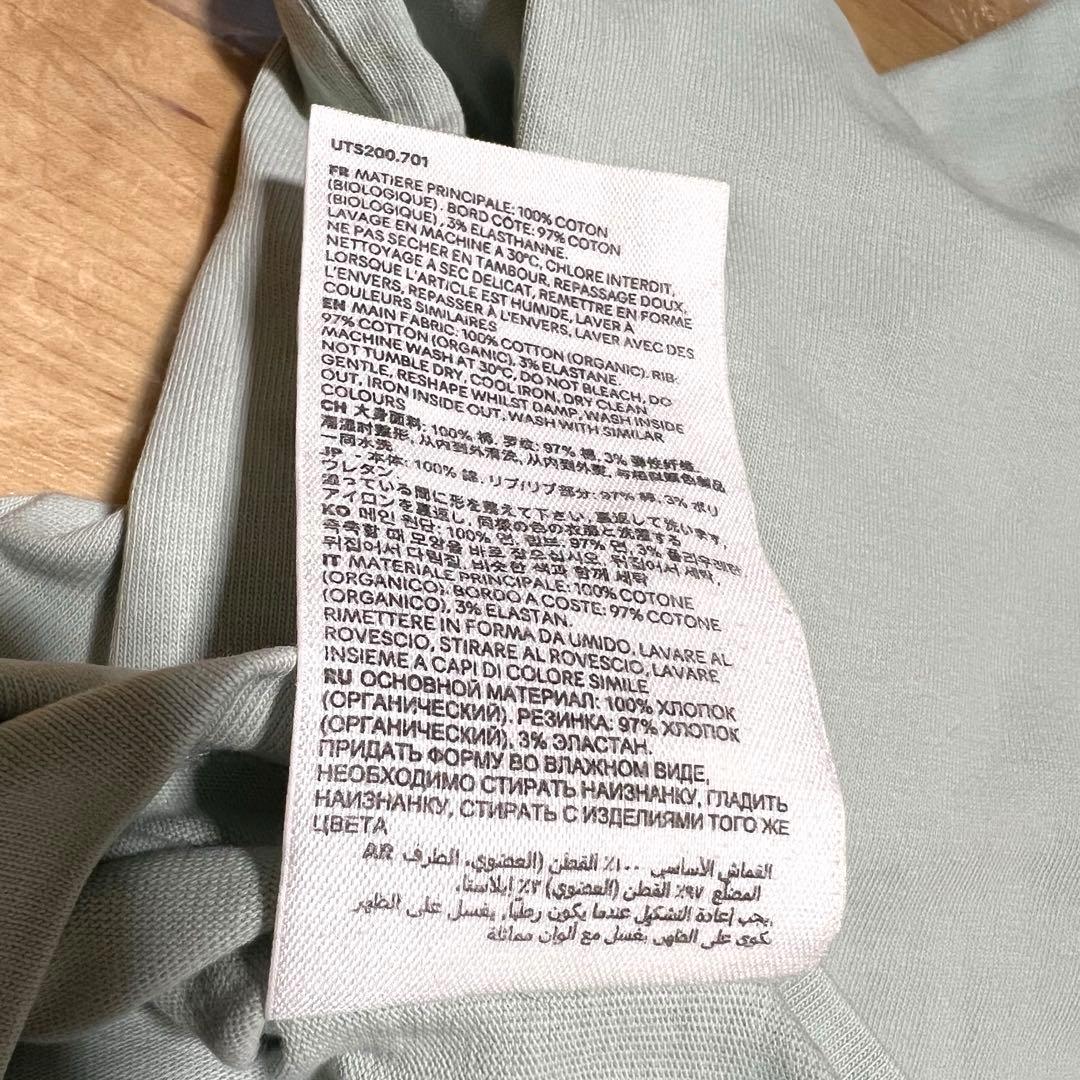 UTS200.701
FR MATIERE PRINCIPALE: 100% COTON
(BIOLOGIQUE). BORD CÔTE: 97% COTON
(BIOLOGIQUE), 3% ELASTHANNE.
LAVAGE EN MACHINE A 30°C, CHLORE INTERDIT,
NE PAS SECHER EN TAMBOUR, REPASSAGE DOUX,
NETTOYAGE A SEC DELICAT, REMETTRE EN FORME
LORSQUE L'ARTICLE EST HUMIDE, LAVER A
L'ENVERS, REPASSER À L'ENVERS, LAVER AVEC DES
COULEURS SIMILAIRES
EN MAIN FABRIC: 100% COTTON (ORGANIC). RIB:
97% COTTON (ORGANIC), 3% ELASTANE.
MACHINE WASH AT 30°C, DO NOT BLEACH, DO
NOT TUMBLE DRY, COOL IRON, DRY CLEAN
GENTLE, RESHAPE WHILST DAMP, WASH INSIDE
OUT, IRON INSIDE OUT, WASH WITH SIMILAR
COLOURS
CH 大身面料: 100% 棉, 罗纹: 97% 棉, 3% 弹性纤维
潮湿时整形, 从内到外清洗, 从内到外熨, 与相似颜色制品
一同水洗
JP - 本体: 100% 綿, リブ/リブ部分: 97% 綿, 3% ポリ
ウレタン
湿っている間に形を整えて下さい, 裏返して洗います,
アイロンを裏返し, 同様の色の衣服と洗濯する
KO 메인 원단: 100% 면, 립브: 97% 면, 3% 폴리우레탄
축축할 때 모양을 바로 잡으십시오, 뒤집어서 세탁,
뒤집어서 다림질, 비슷한 색과 함께 세탁
IT MATERIALE PRINCIPALE: 100% COTONE
(ORGANICO). BORDO A COSTE: 97% COTONE
(ORGANICO), 3% ELASTAN.
RIMETTERE IN FORMA DA UMIDO, LAVARE AL
ROVESCIO, STIRARE AL ROVESCIO, LAVARE
INSIEME A CAPI DI COLORE SIMILE
RU ОСНОВНОЙ МАТЕРИАЛ: 100% ХЛОПОК
(ОРГАНИЧЕСКИЙ). РЕЗИНКА: 97% ХЛОПОК
(ОРГАНИЧЕСКИЙ), 3% ЭЛАСТАН.
ПРИДАТЬ ФОРМУ ВО ВЛАЖНОМ ВИДЕ,
НЕОБХОДИМО СТИРАТЬ НАИЗНАНКУ, ГЛАДИТЬ
НАИЗНАНКУ, СТИРАТЬ С ИЗДЕЛИЯМИ ТОГО ЖЕ
ЦВЕТА
AR القماش الأساسي ١٠٠٪ القطن (العضوي. الطرف
المضلع ٩٧٪ القطن (العضوي) ٣٪ ايلاستا.
يجب إعادة التشكيل عندما يكون رطبًا, يغسل على الظهر
تكوى على الظهر, يغسل مع ألوان مماثلة